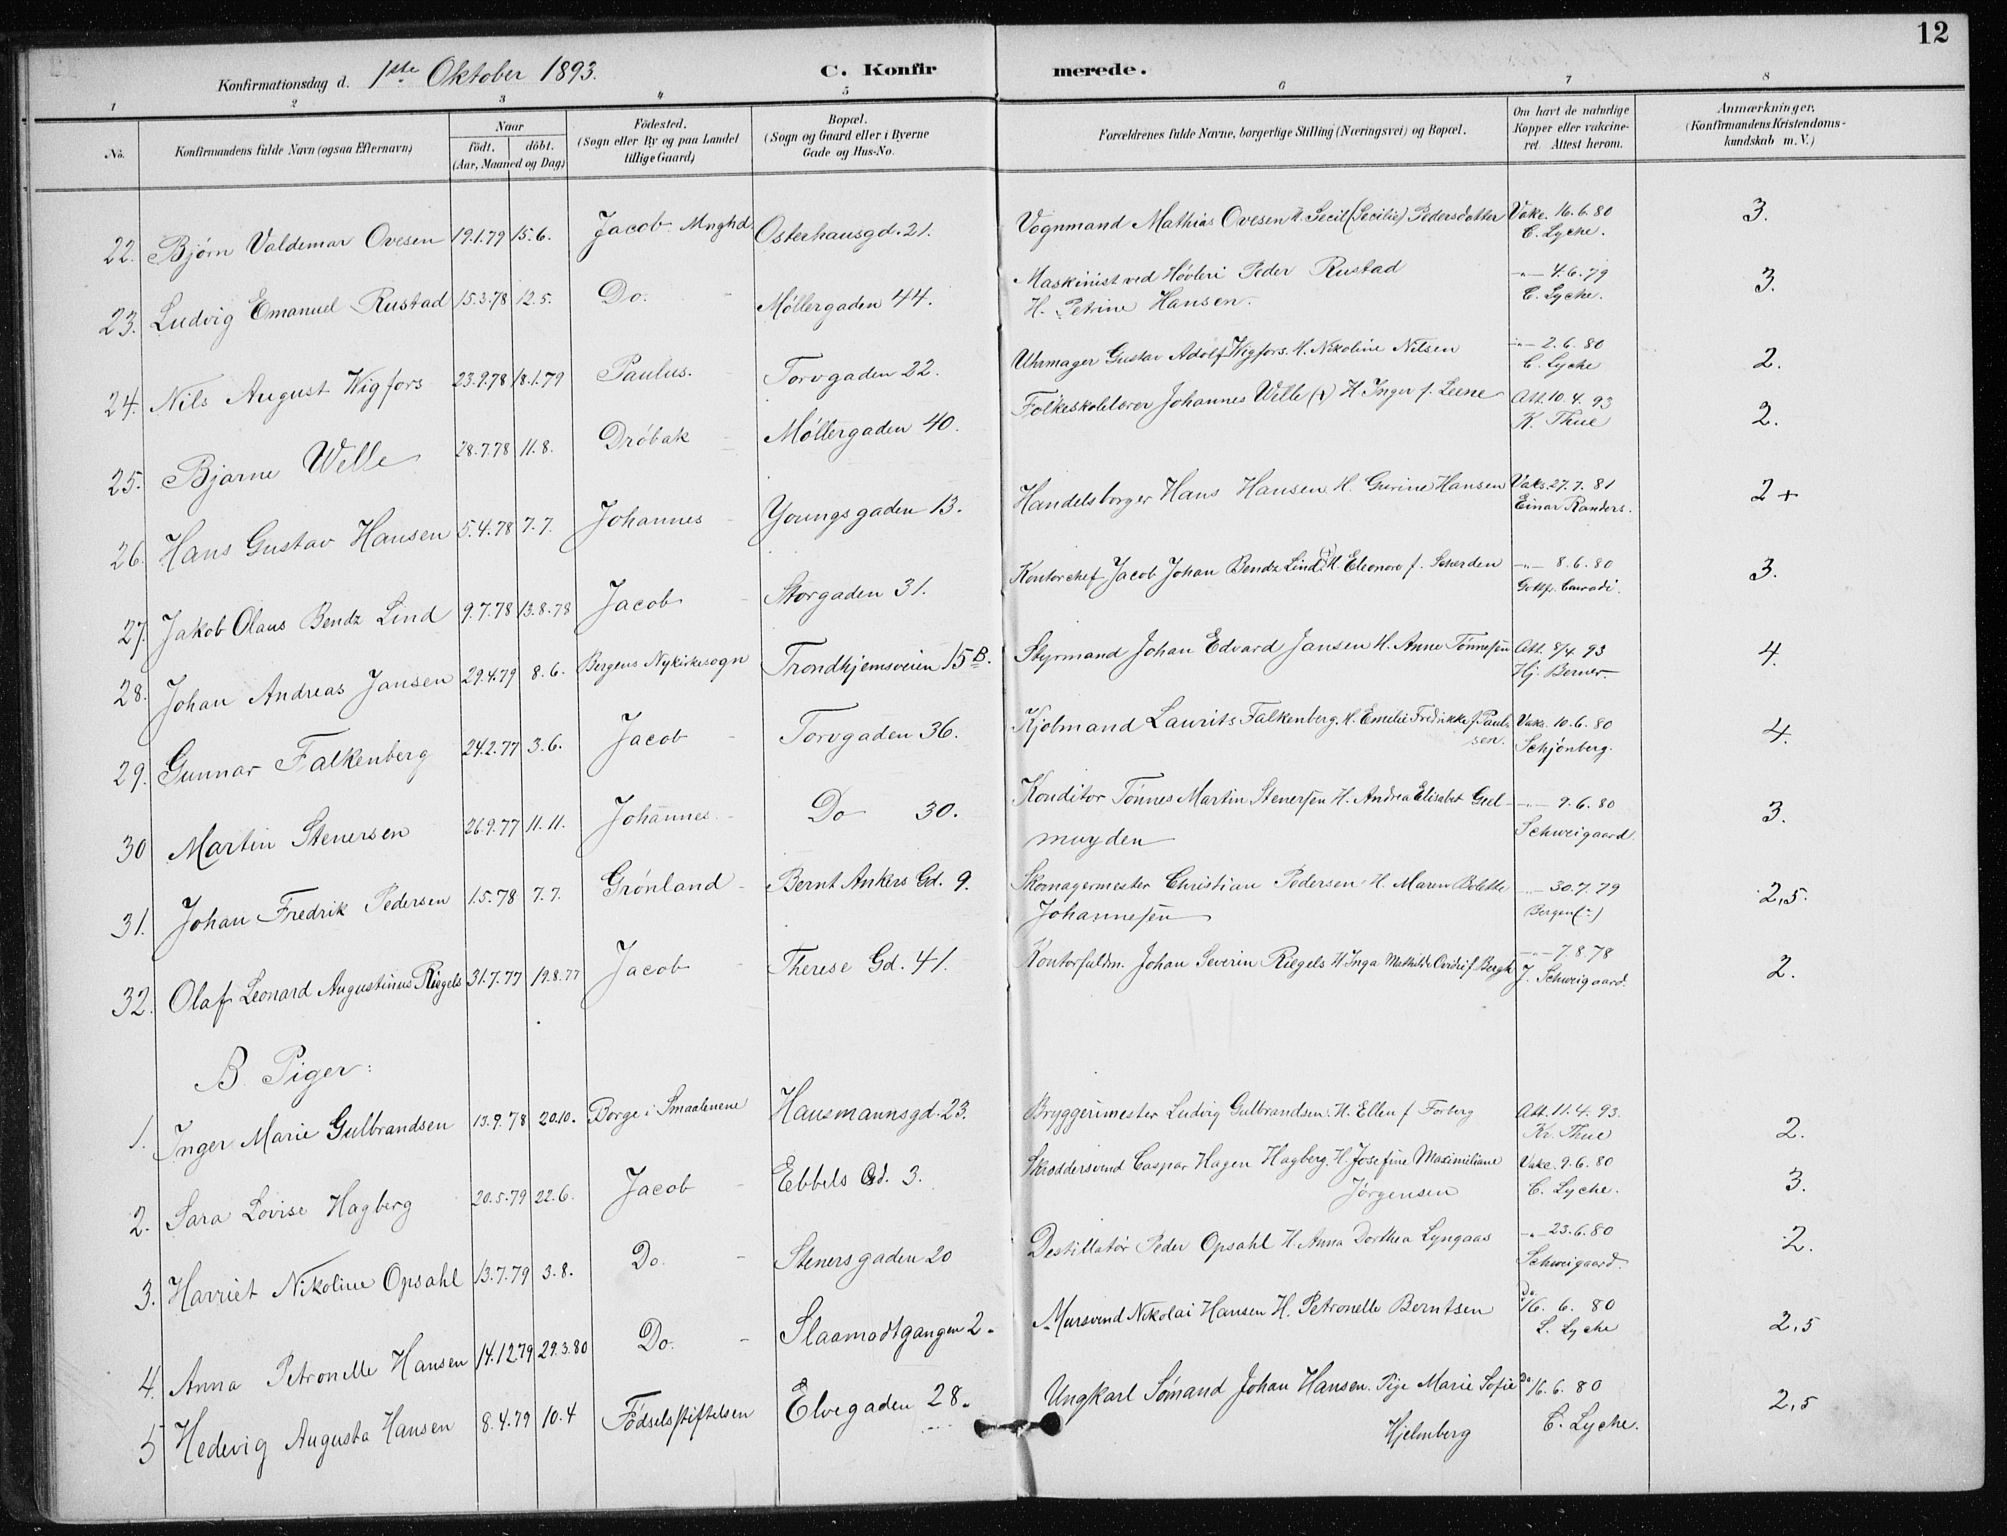 12
Konfirmationsdag d. 1ste Oktober 1893. C. Konfirmerede.
1 2 3 4 5 6 7 8
No. Konfirmandens fulde Navn (ogsaa Efternavn) Naar födt. döbt. (Aar, Maaned og Dag) Födested. (Sogn eller By og paa Landet tillige Gaard) Bopæl. (Sogn og Gaard eller i Byerne Gade og Hus-No. Forældrenes fulde Navne, borgerlige Stilling (Næringsvei) og Bopæl. Om havt de naturlige Kopper eller vakcineret. Attest herom. Anmærkninger. (Konfirmandens Kristendomskundskab m. V.)
22. Bjørn Valdemar Ovesen 19.1.79 15.6. Jacob Mnghd. Osterhausgd. 21. Vognmand Mathias Ovesen H. Secil (Secilie) Pedersdatter Vakc. 16.6.80 C. Lyche. 3.
23. Ludvig Emanuel Rustad 15.3.78 12.5. Do. Møllergaden 44. Maskinist ved Høvleri Peder Rustad H. Petrine Hansen. -"- 4.6.79 C. Lyche. 3.
24. Nils August Wigfors 23.9.78 18.1.79 Paulus. Torvgaden 22. Uhrmager Gustav Adolf Wigfors. H. Nikoline Nilsen -"- 2.6.80 C. Lyche 2.
25. Bjarne Welle 28.7.78 11.8. Drøbak Møllergaden 40. Folkeskolelærer Johannes Welle H Inger f. Leene Att. 10.4.93 K. Thue 2.
26. Hans Gustav Hansen 5.4.78 7.7. Johannes Youngsgaden 13. Handelsborger Hans Hansen H. Gurine Hansen Vaks. 27.7.81 Einar Randers. 2+
27. Jakob Olaus Bendz Lind 9.7.78 13.8.78 Jacob Storgaden 31. Kontorchef Jacob Johan Bendz Lind H. Eleonora f. Scherden -"- 8.6.80 3.
28. Johan Andreas Jansen 29.4.79 8.6. Bergens Nykirkesogn Trondhjemsveien 15 B. Styrmand Johan Edvard Jansen H. Anne Tønnesen Att. 8/4 93 Hj. Berner. 4.
29. Gunnar Falkenberg 24.2.77 3.6. Jacob Torvgaden 36. Kjøbmand Laurits Falkenberg. H. Emilie Fredrikke f. Paulsen. Vakc. 10.6.80 Schjønberg. 4.
30 Martin Stenersen 26.9.77 11.11. Johannes. Do 30. Konditor Tønnes Martin Stenersen H. Andrea Elisabet Geelmuyden -"- 9.6.80 Schweigaard. 3.
31. Johan Fredrik Pedersen 1.5.78 7.7. Grønland Bernt Ankers Gd. 9. Skomagermester Christian Pedersen. H. Maren Bolette Johannesen -"- 30.7.79 Bergen 2,5.
32. Olaf Leonard Augustinus Riegels 31.7.77 19.8.77 Jacob Therese Gd. 41. Kontorfuldm. Johan Severin Riegels H Inga Mathilde f. Bergh -"- 7.8.78 J. Schweigaard. 2.
B. Piger:
1. Inger Marie Gulbrandsen 13.9.78 20.10. Borge i Smaalenene Hausmannsgd. 23. Bryggerimester Ludvig Gulbrandsen. H. Ellen f Forberg Att. 11.4.93. Kr. Thue 2.
2. Sara Lovise Hagberg 20.5.79 22.6. Jacob Ebbels Gd. 3. Skræddersvend Caspar Hagen Hagberg. H. Josefine Maximiliane Jørgensen Vakc. 9.6.80 C. Lyche. 3.
3. Harriet Nikoline Opsahl 13.7.79 3.8. Do. Stenersgaden 20 Destillatør Peder Opsahl H. Anna Dorthea Lyngaas -"- 23.6.80 Schweigaard. 2.
4. Anna Petronelle Hansen 14.12.79 29.3.80 Do. Slaamotgangen 2. Mursvend Nikolai Hansen H. Petronelle Berntsen Do 16.6.80 C. Lyche 2,5
5 Hedevig Augusta Hansen 8.4.79 10.4 Födselsstiftelsen Elvegaden 28. Ungkarl Sømand Johan Hansen. Pige Marie Sofie Hjelmberg Do 16.6.80 C. Lyche. 2,5